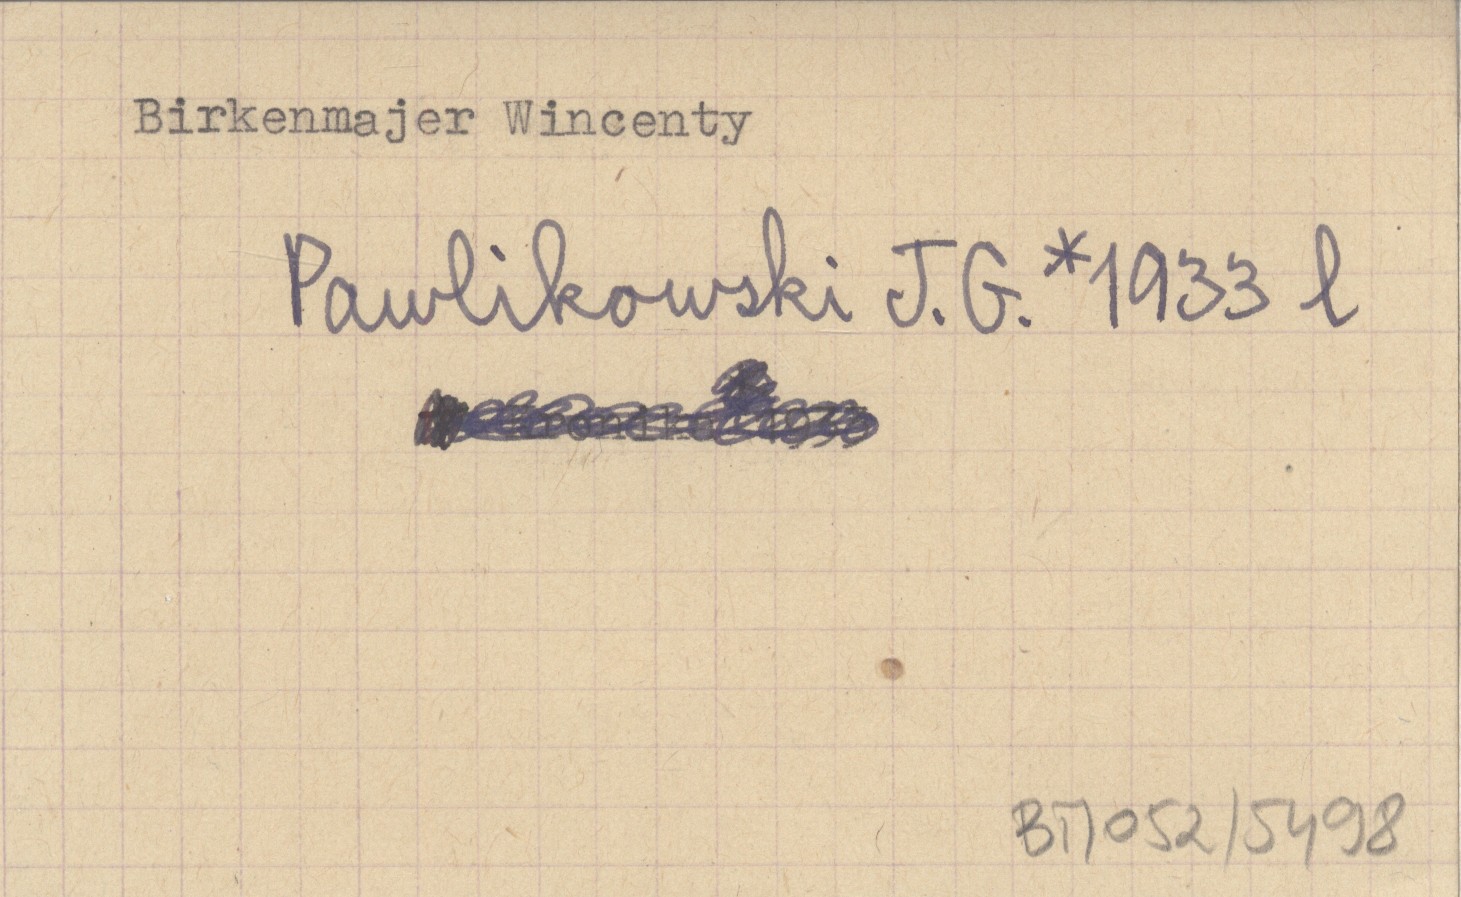 Birkenmajer Wincenty
Pawlikowski J.G. *1933 l
BT/052/5498